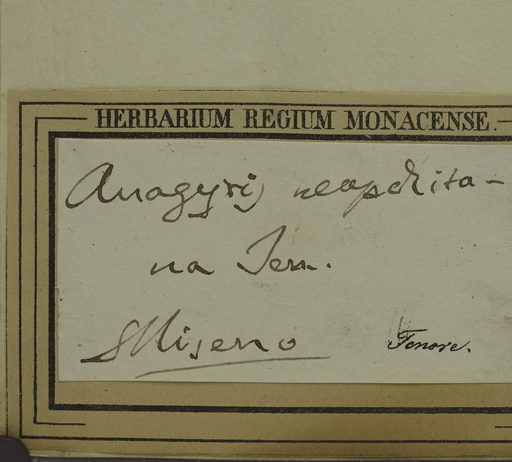 HERBARIUM REGIUM MONACENSE.
Anagyris neapolita-
na Ten.
Miseno
Tenore.